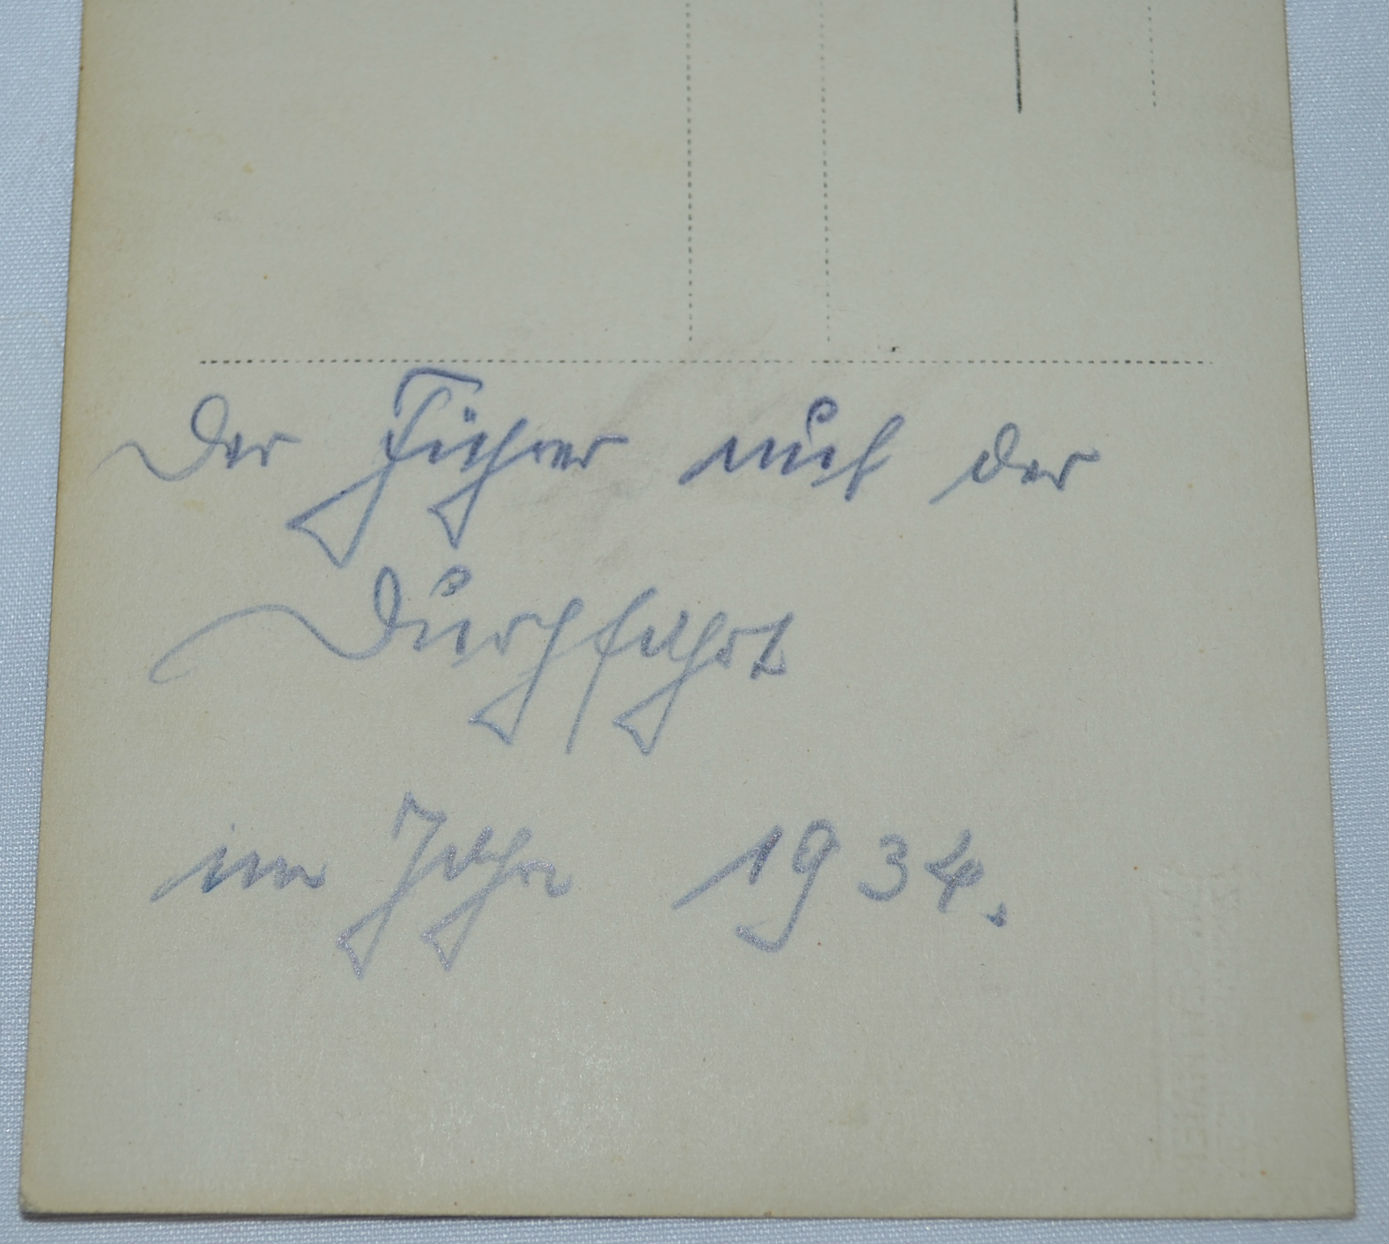 Der Führer auf der
Durchfahrt
im Jahre 1934.